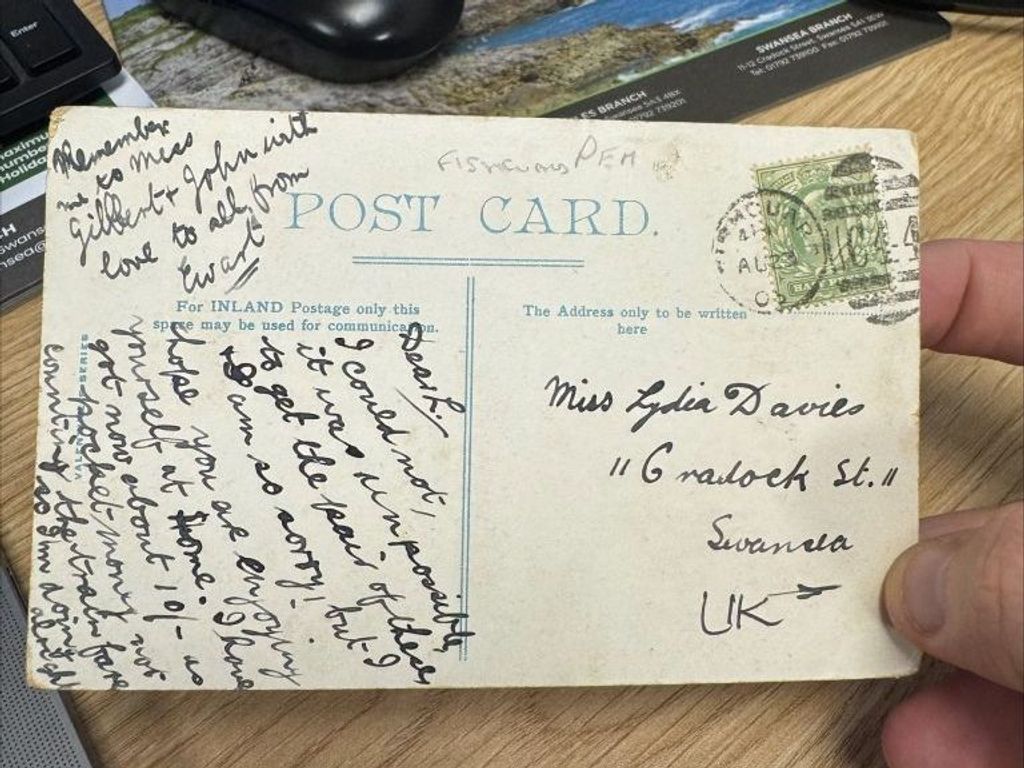 Enter
SWANSEA BRANCH
11-12 Cradock Street, Swansea SA1 3EW
Tel: 01792 739100 Fax: 01792 739101
LES BRANCH
Swansea SA5 4BX
01792 739201
aximum
number
Holida
CH
swans
nsea@
Remember
me to Miss
Gilbert & John with
love to all from
Ewart
FISHGUARD PEM
POST CARD.
AU 23
For INLAND Postage only this
space may be used for communication.
The Address only to be written
here
SERIES
Dear L.
I could not,
it was un possible,
to get the pair of these
I am so sorry! but I
hope you are enjoying
yourself at Home. I have
got now about 10/- as
pocket-money not
counting the train fare
so I'm doing
alright
Miss Lydia Davies
"11 Cradock St."
Swansea
UK